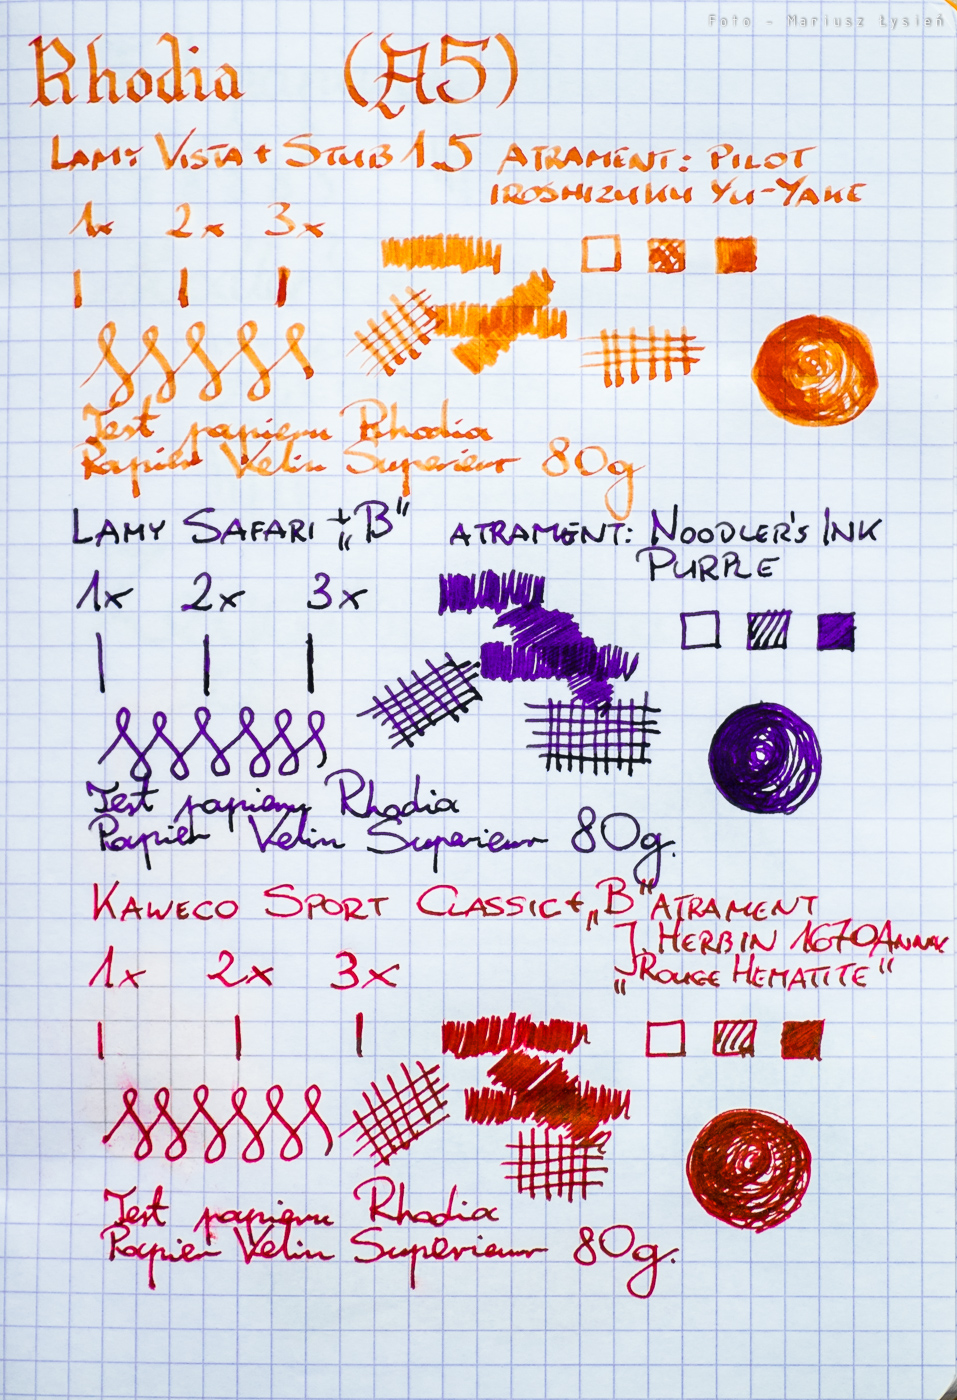 Foto - Mariusz Łysień
Rhodia (A5)
Lamy Vista + Stub 1.5 Atrament: Pilot
Iroshizuku Yu-Yake
1x 2x 3x
Test papieru Rhodia
Papier Velin Superieur 80g
Lamy Safari + „B” Atrament: Noodler's Ink
Purple
1x 2x 3x
Test papieru Rhodia
Papier Velin Superieur 80g.
Kaweco Sport Classic + „B” Atrament
J. Herbin 1670 Anniv
„Rouge Hematite”
1x 2x 3x
Test papieru Rhodia
Papier Velin Superieur 80g.